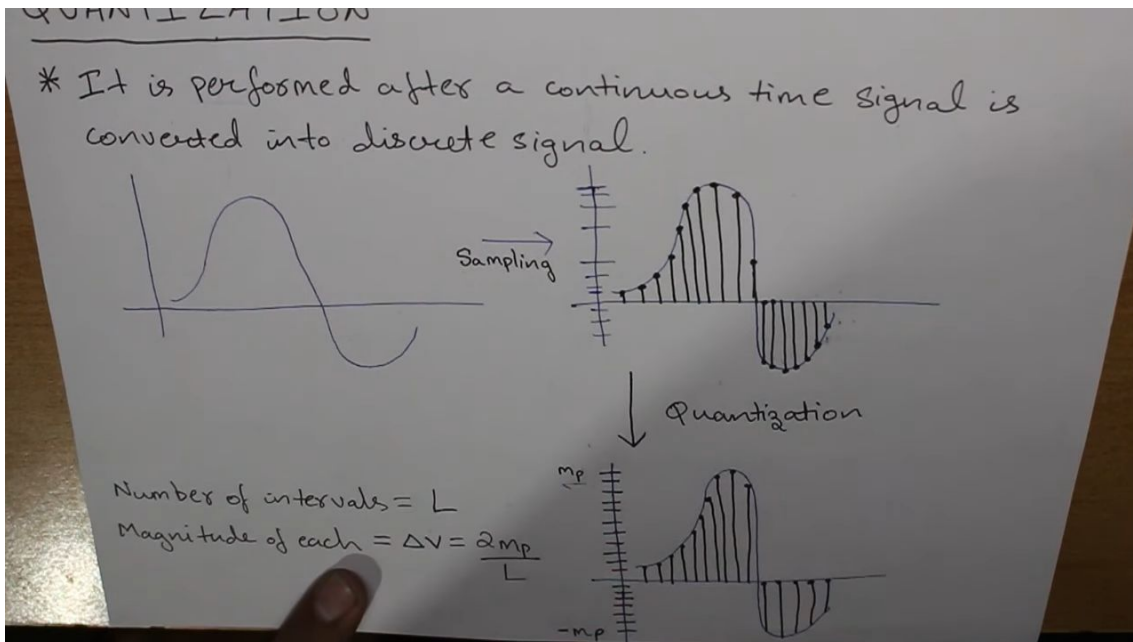 QUANTIZATION
* It is performed after a continuous time signal is
converted into discrete signal.
Sampling
Quantization
mp
Number of intervals = L
Magnitude of each = ΔV = 2mp/L
-mp